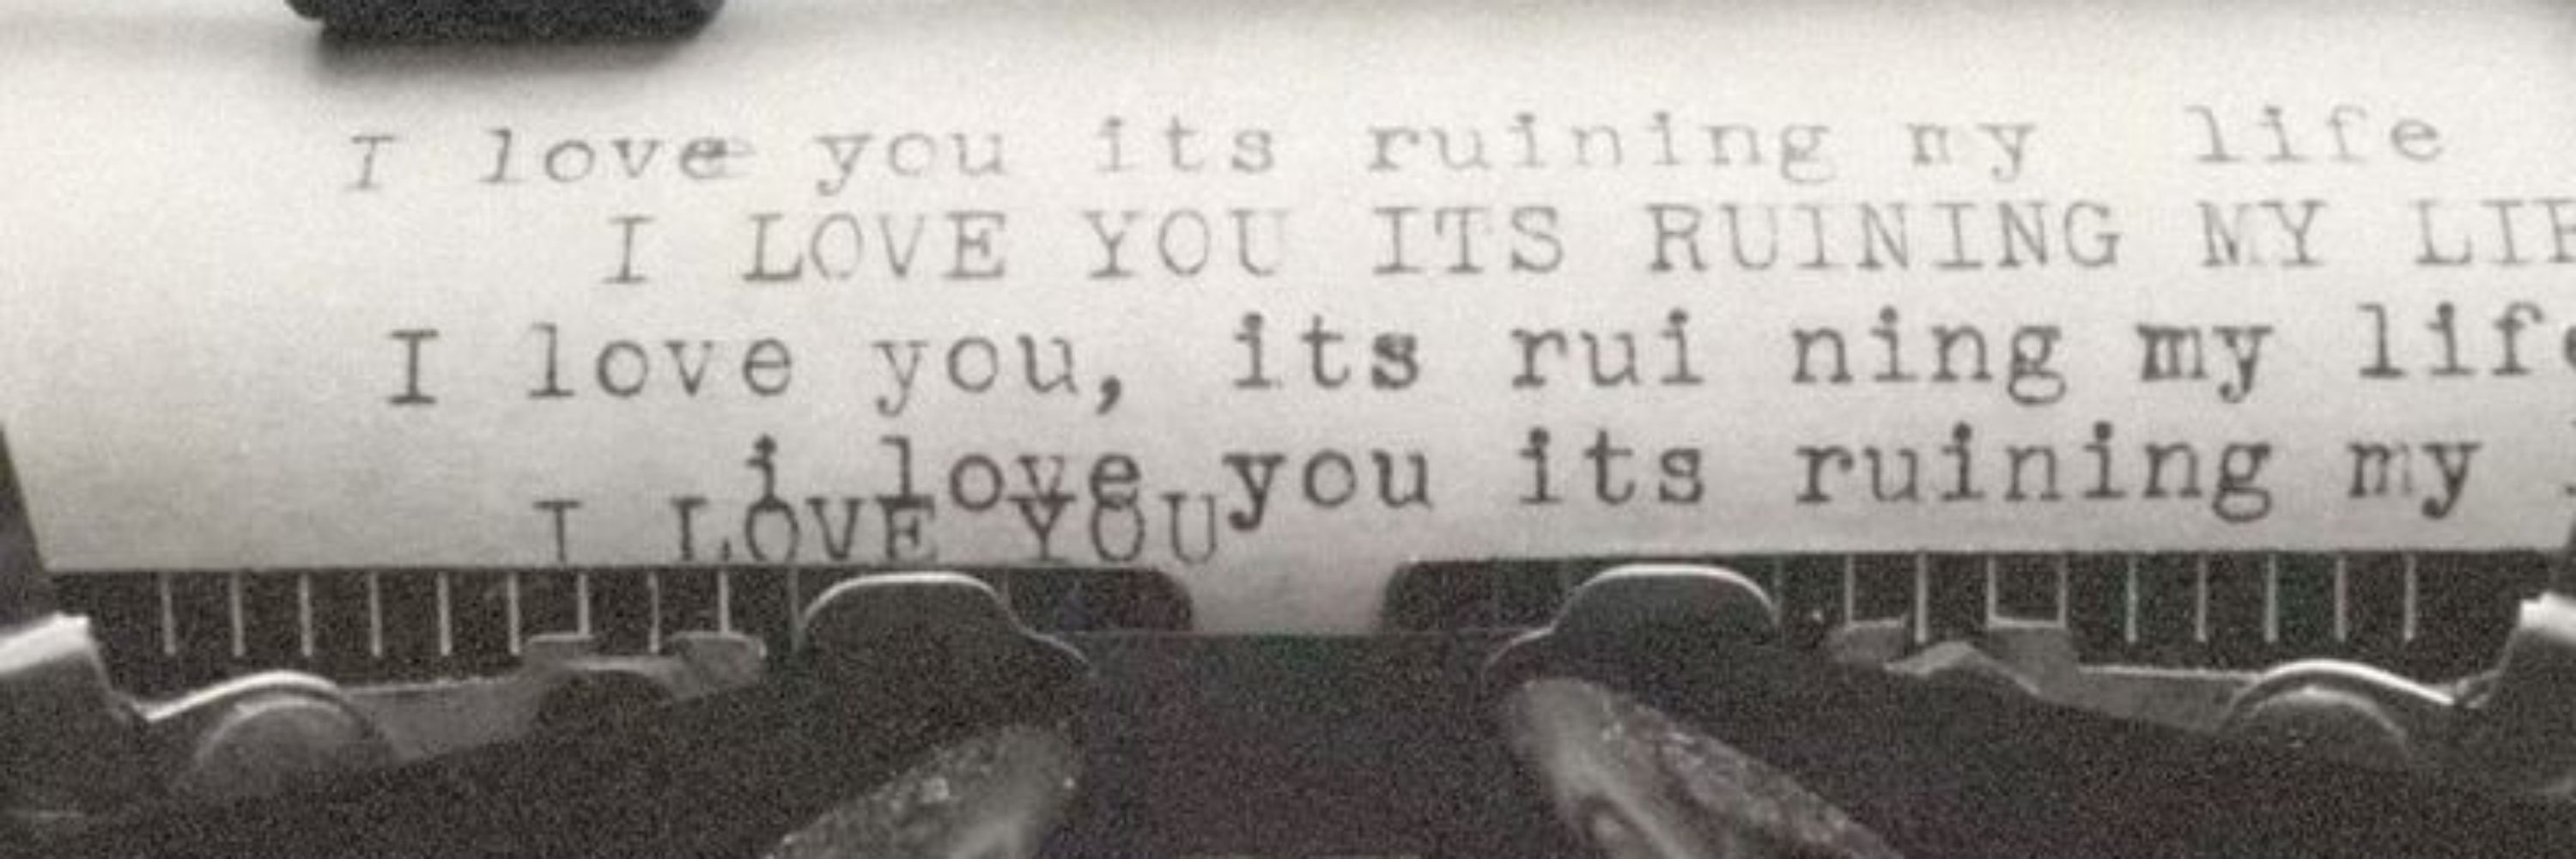 I love you its ruining my life
I LOVE YOU ITS RUINING MY LIF
I love you, its rui ning my life
i love you its ruining my
I LOVE YOU